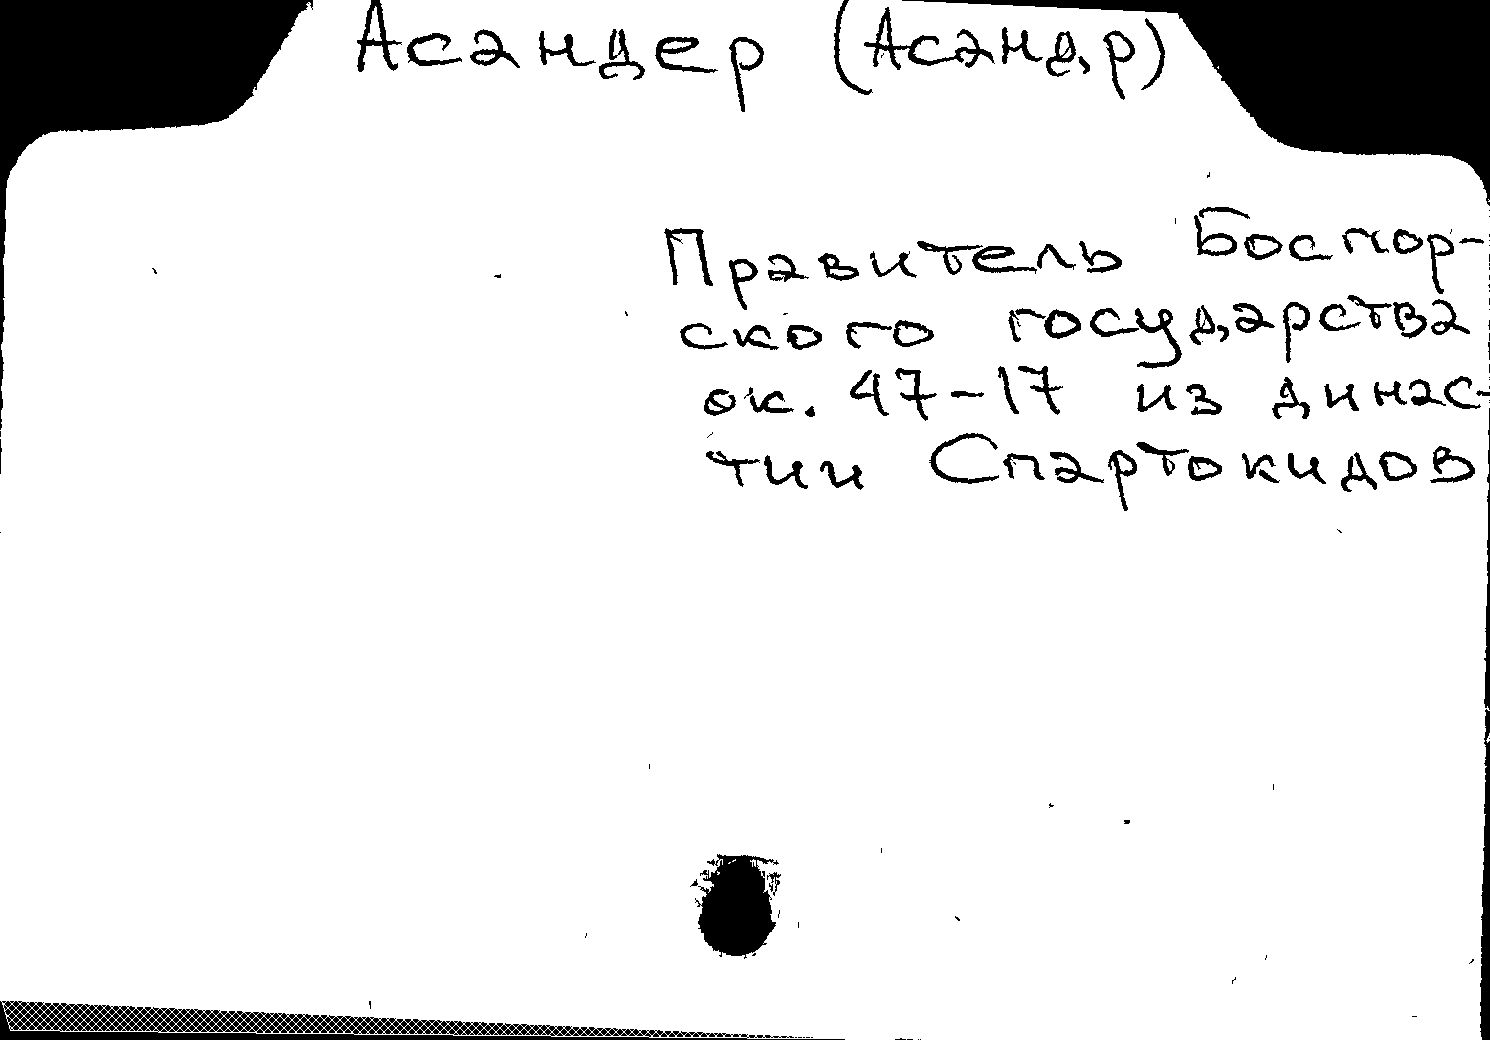 Асандер (Асандр)
Правитель Боспор-
ского государства
ок. 47-17 из динас-
тии Спартокидов